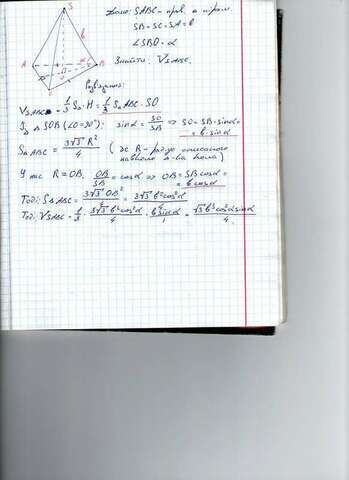 S
b
A
B
C
O
α
Дано: SABC – прав.
SB = SC = SA = b
∠SBO = α
Знайти: V SABC.
Розвʼязання:
V SABC = 1/3 S₀ · H = 1/3 S△ABC · SO
Із △ SOB (∠O = 90°): sin α = SO/SB ⇒ SO = SB · sin α =
= b · sin α
S△ABC = 3√3 R²/4 ( де R – радіус описаного
навколо △-ка кола )
У нас R = OB, OB/SB = cos α ⇒ OB = SB cos α =
= b cos α
Тоді: S△ABC = 3√3 OB²/4 = 3√3 b² cos² α/4
Тоді: V SABC = 1/3 · 3√3 b² cos² α/4 · b sin α/1 = √3 b³ cos² α sin α/4 .